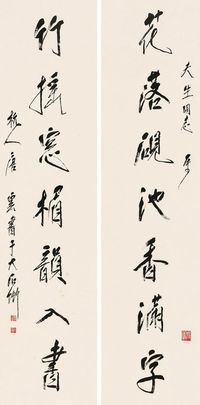 生同志
花落硯池香滿字
竹搖窓楣韻入書
杭人唐雲書于大石齋